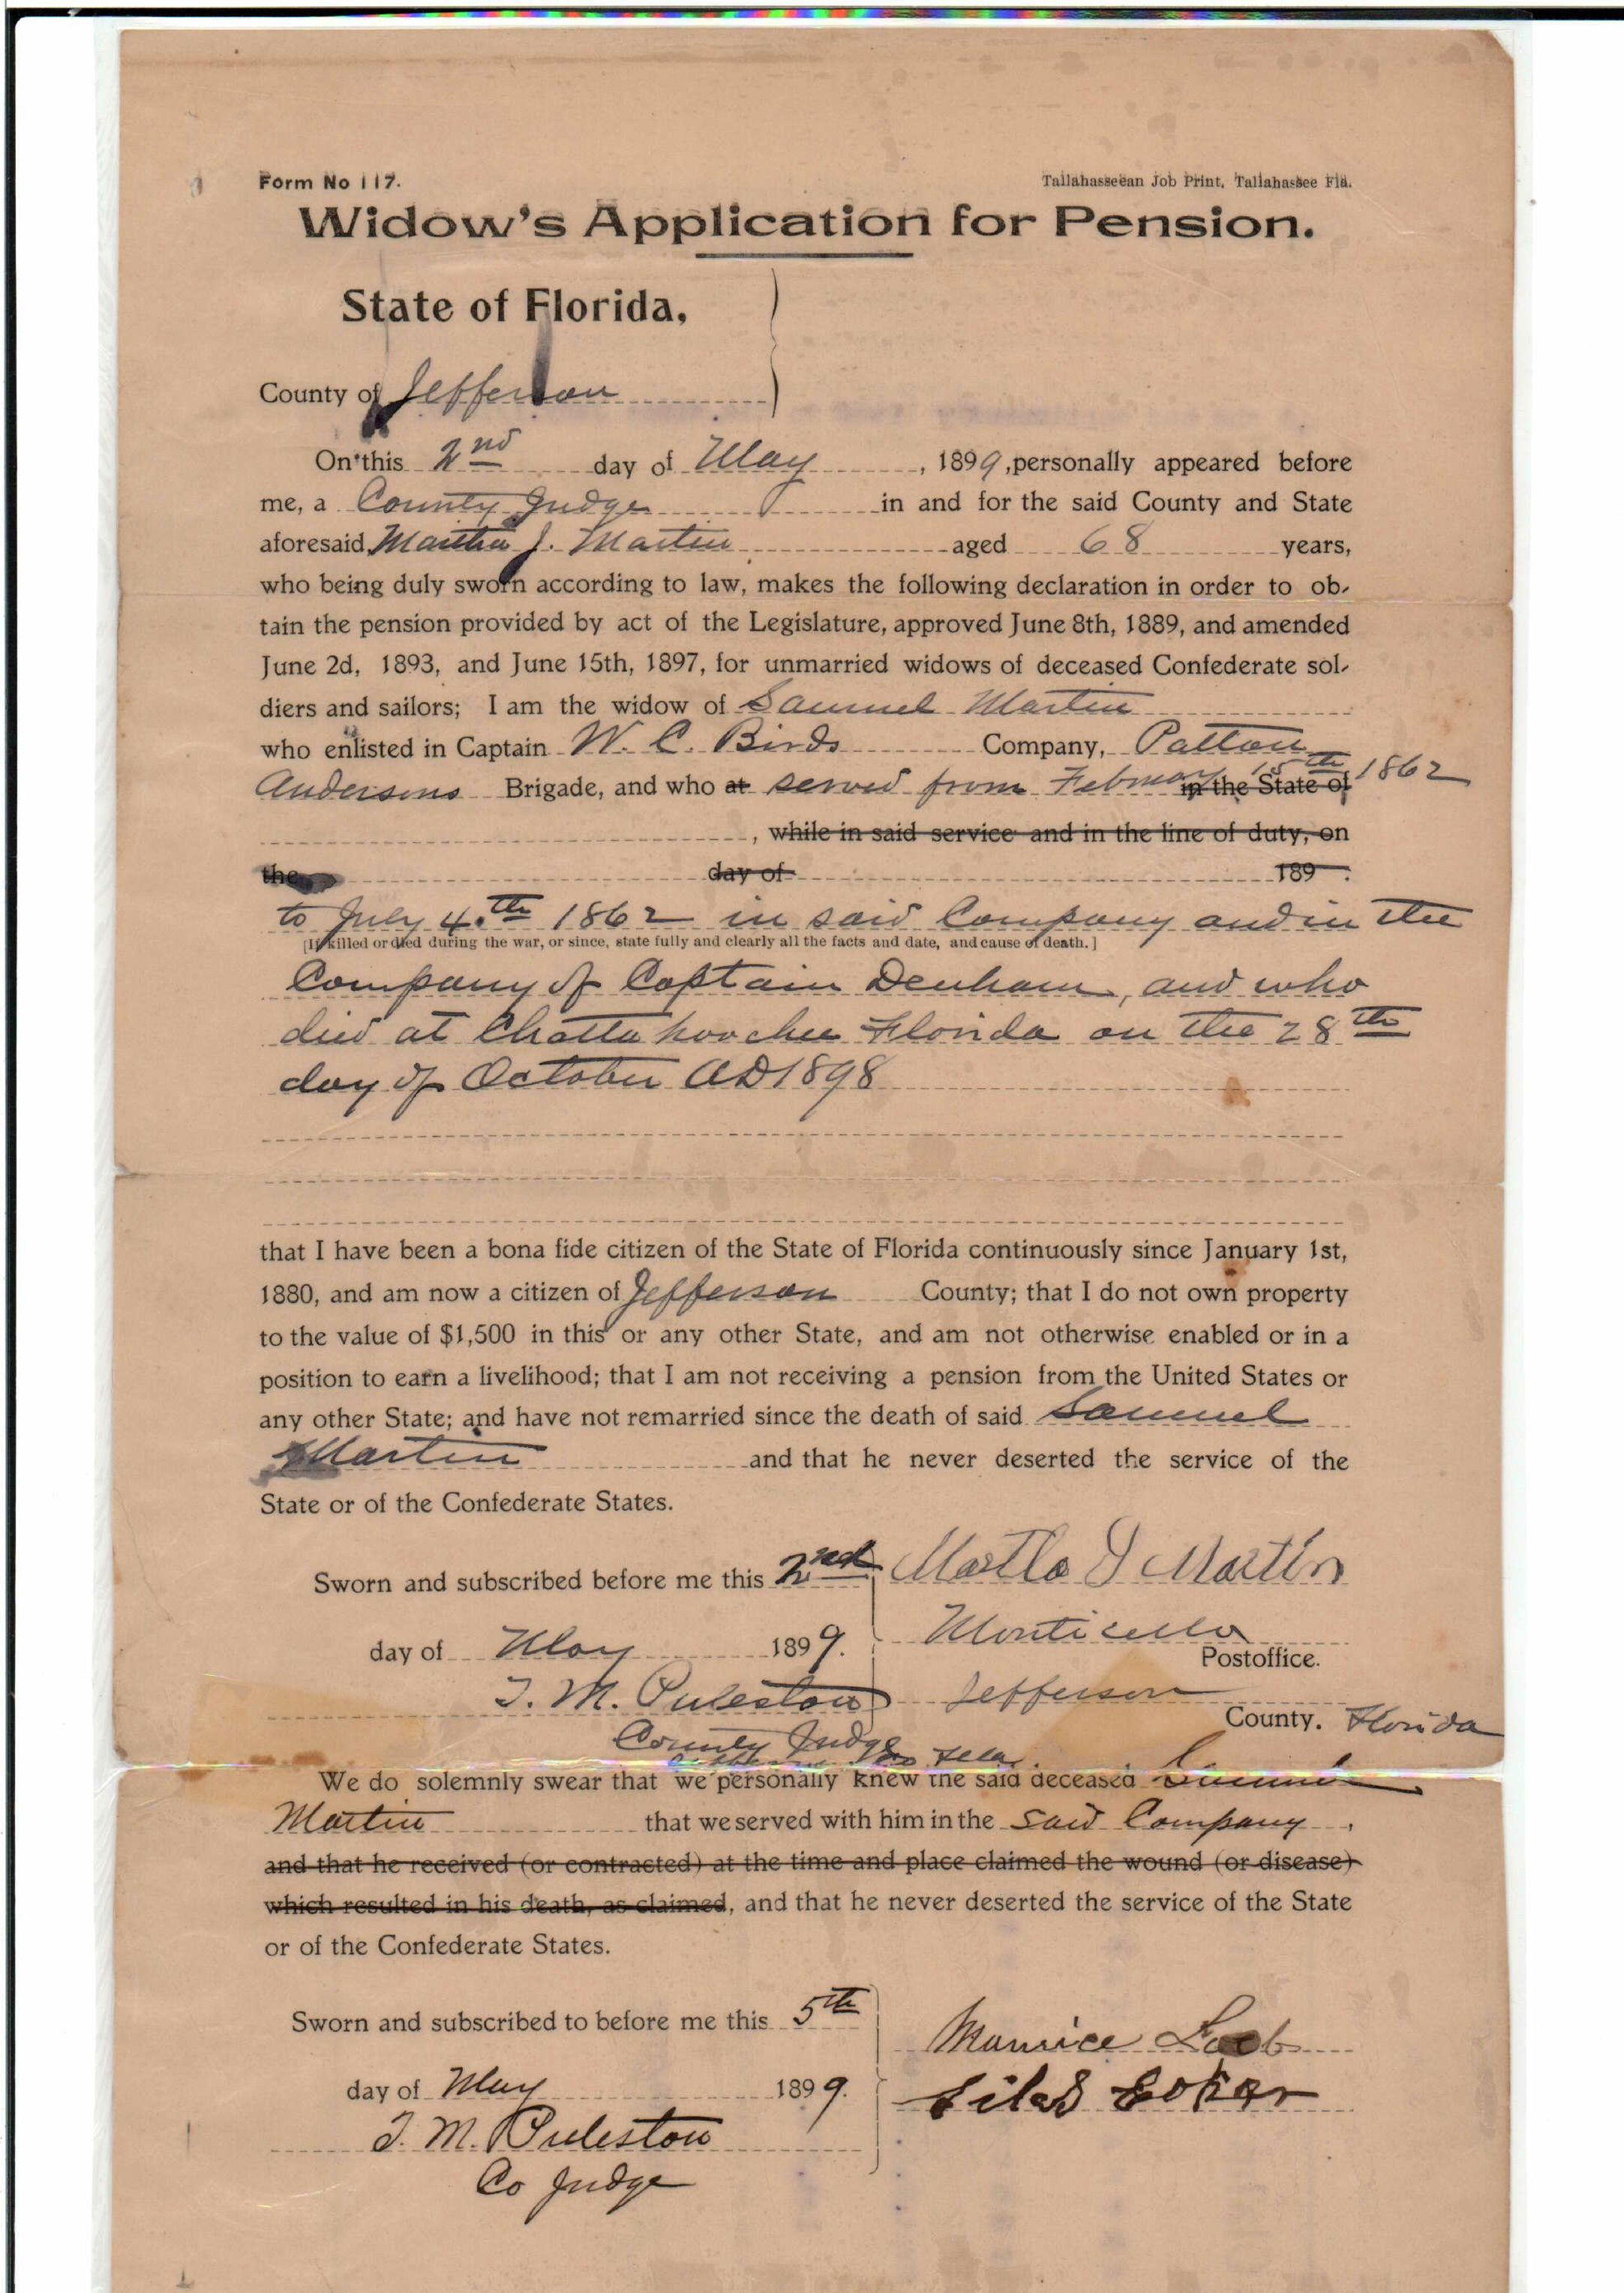 Form No 117.
Tallahasseean Job Print, Tallahassee Fla.
Widow's Application for Pension.
State of Florida,
County of Jefferson
On this 2nd day of May, 1899, personally appeared before
me, a County Judge in and for the said County and State
aforesaid Martha J. Martin aged 68 years,
who being duly sworn according to law, makes the following declaration in order to ob-
tain the pension provided by act of the Legislature, approved June 8th, 1889, and amended
June 2d, 1893, and June 15th, 1897, for unmarried widows of deceased Confederate sol-
diers and sailors; I am the widow of Samuel Martin
who enlisted in Captain W. C. Birds Company, Patton
Andersons Brigade, and who at served from February 15th 1862 in the State of
, while in said service and in the line of duty, on
the day of 189 .
to July 4.th 1862 in said Company and in the
[If killed or died during the war, or since, state fully and clearly all the facts and date, and cause of death.]
Company of Captain Denham, and who
died at Chattahoochee Florida on the 28th
day of October AD 1898
that I have been a bona fide citizen of the State of Florida continuously since January 1st,
1880, and am now a citizen of Jefferson County; that I do not own property
to the value of $1,500 in this or any other State, and am not otherwise enabled or in a
position to earn a livelihood; that I am not receiving a pension from the United States or
any other State; and have not remarried since the death of said Samuel
Martin and that he never deserted the service of the
State or of the Confederate States.
Sworn and subscribed before me this 2nd Martha J Martin
day of May 1899. Monticello
Postoffice.
T. M. Puleston Jefferson
County. Florida
County Judge
We do solemnly swear that we personally knew the said deceased Samuel
Martin that we served with him in the said Company,
and that he received (or contracted) at the time and place claimed the wound (or disease)
which resulted in his death, as claimed, and that he never deserted the service of the State
or of the Confederate States.
Sworn and subscribed to before me this 5th
Maurice Loeb
day of May 1899. Silas Coker
T. M. Puleston
Co Judge